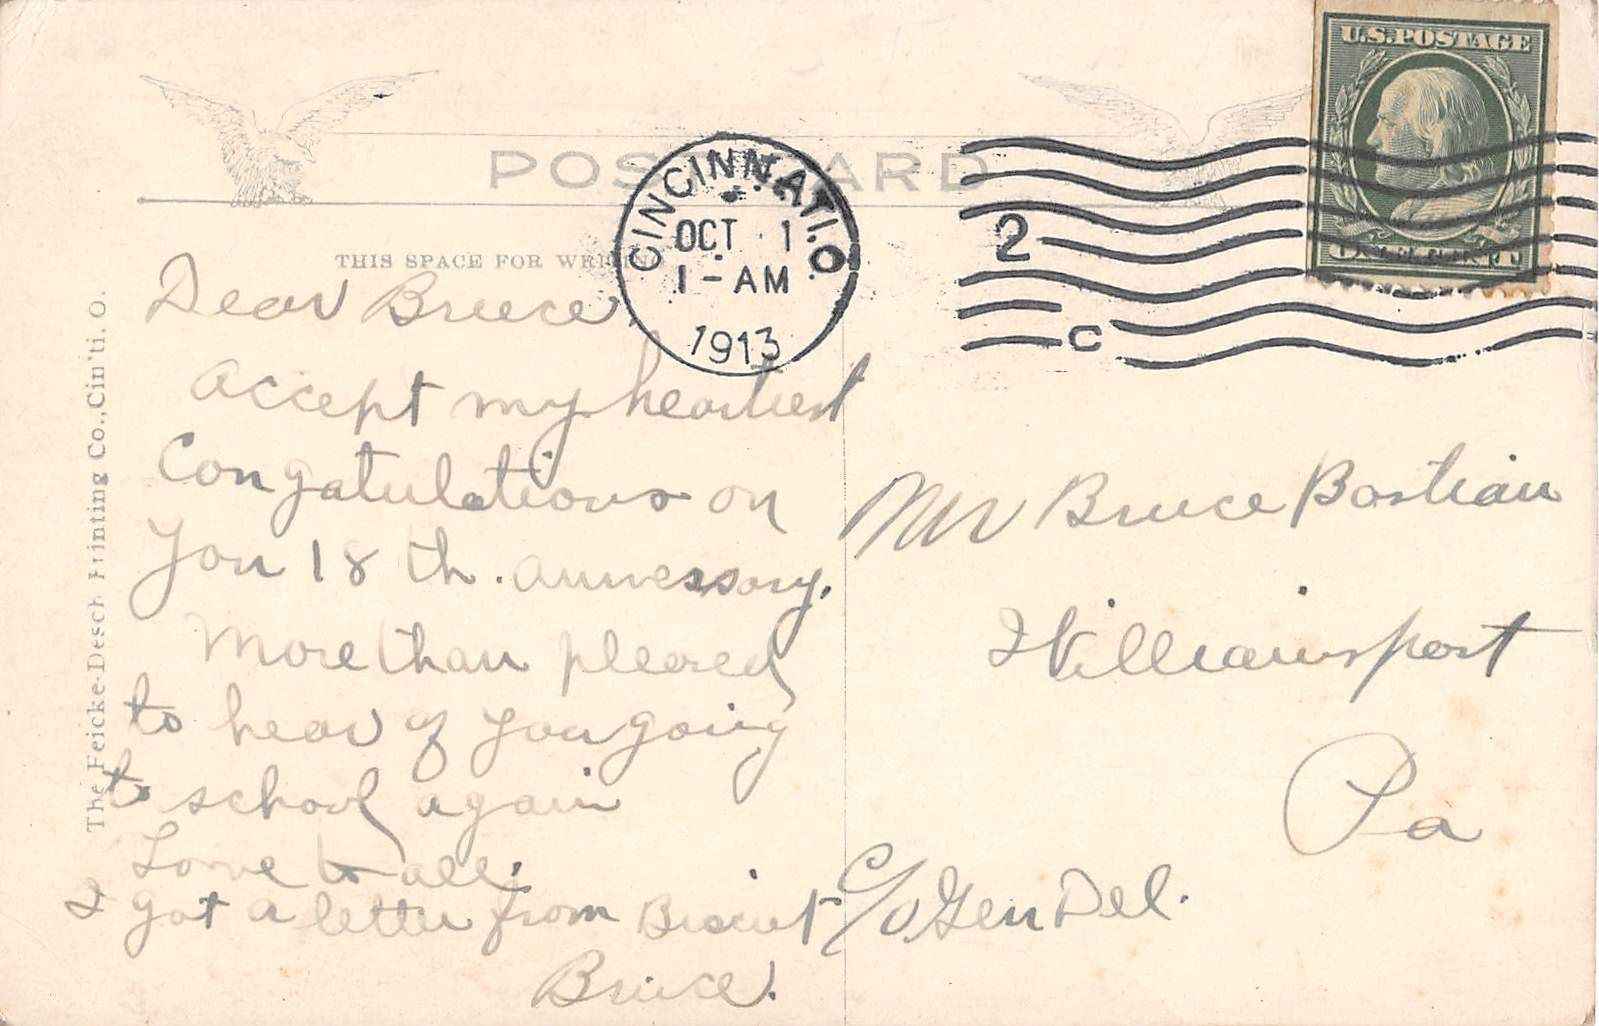 U.S.POSTAGE
POST CARD
CINCINNATI, O.
OCT 1
1-AM
1913
2
C
THIS SPACE FOR WRITING
The Feicke-Desch Printing Co., Cin'ti. O.
Dear Bruce,
accept my heartiest
Congatulations on
you 18th. annvessary.
More than pleased
to hear of you going
to school again
Love to all.
I got a letter from
Bruce.
Mr Bruce Bastian
Williamsport
Pa
C/o Gen Del.